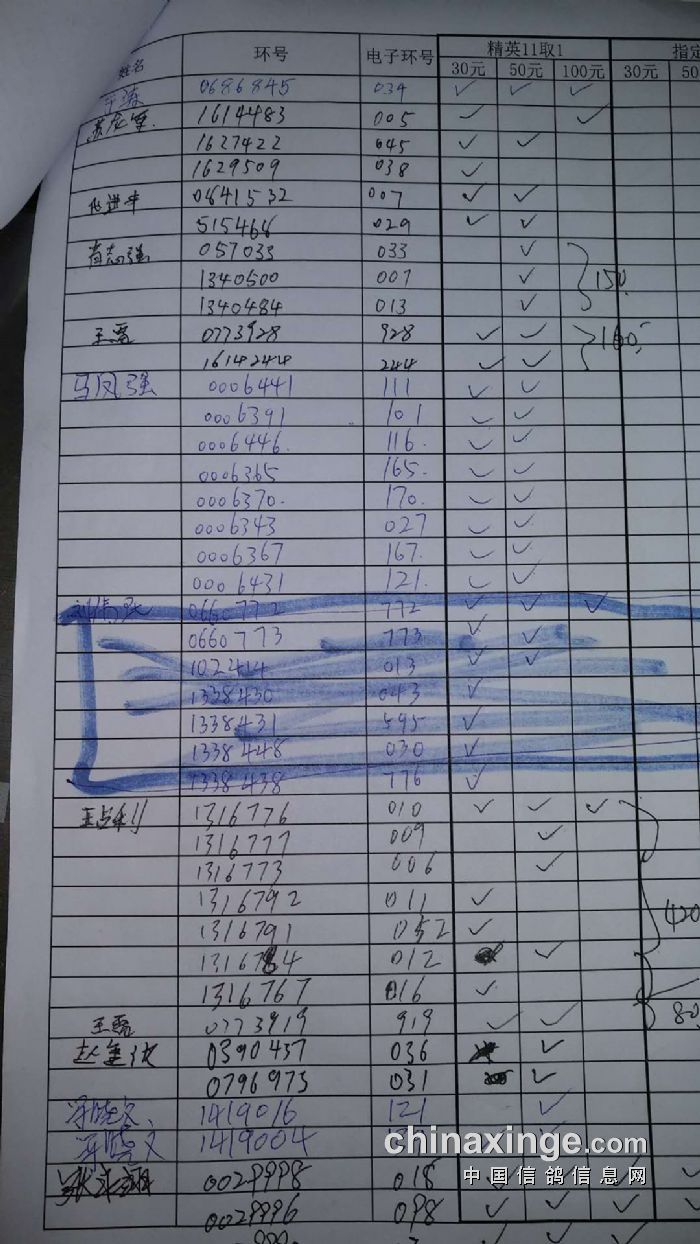 姓名 环号 电子环号 精英11取1 指定
30元 50元 100元 30元 50
0686845 034 ✓ ✓ ✓
1614483 005 ✓ ✓
1627422 045 ✓ ✓
1629509 038 ✓
0641532 007 ✓ ✓
515466 029 ✓ ✓
肖志强 057033 033 ✓
1340500 007 ✓ 150
1340484 013 ✓
王磊 0773928 928 ✓ ✓ 160
1614244 244 ✓ ✓
马凤强 0006441 111 ✓ ✓
0006391 101 ✓ ✓
0006446 116 ✓ ✓
0006365 165 ✓ ✓
0006370 170 ✓ ✓
0006343 027 ✓ ✓
0006367 167 ✓ ✓
0006431 121 ✓ ✓
0660772 772 ✓ ✓ ✓
0660773 773 ✓ ✓
102414 013 ✓ ✓
1338430 043 ✓
1338431 595 ✓
1338448 030 ✓
1338438 776 ✓
王占利 1316776 010 ✓ ✓ ✓
1316777 009 ✓
1316773 006 ✓
1316792 011 ✓ 420
1316791 052 ✓
1316784 012 ✓
1316767 016 ✓
王磊 0773919 919 ✓ ✓ 80
0390437 036 ✓
0796973 031 ✓
冯晓文 1419016 121 ✓
冯晓文 1419004
0029998 018 ✓ ✓
0029996 098 ✓ ✓ ✓ ✓ ✓
chinaxinge.com
中国信鸽信息网